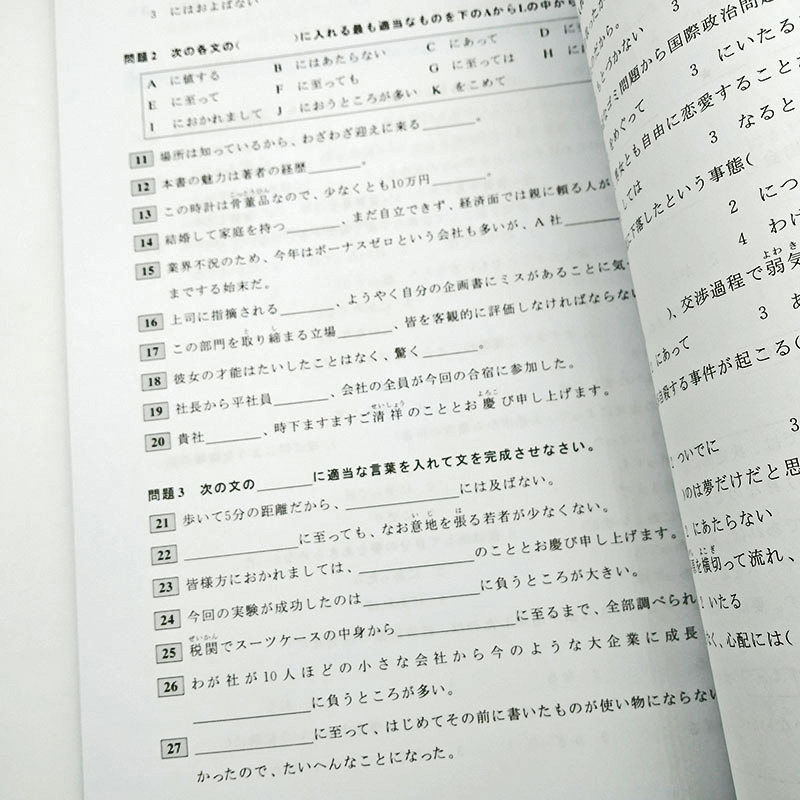 3 にはおよばない
問題2 次の各文の( )に入れる最も適当なものを下のAからLの中から
A に値する B にはあたらない C にあって D に
E に至って F に至っても G に至っては H に
I におかれまして J におうところが多い K をこめて
11 場所は知っているから、わざわざ迎えに来る______。
12 本書の魅力は著者の経歴______。
13 この時計は骨董品なので、少なくとも10万円______。
こっとうひん
14 結婚して家庭を持つ______、まだ自立できず、経済面では親に頼る人が
15 業界不況のため、今年はボーナスゼロという会社も多いが、A社______
までする始末だ。
16 上司に指摘される______、ようやく自分の企画書にミスがあることに気
17 この部門を取り締まる立場______、皆を客観的に評価しなければならない
と し
18 彼女の才能はたいしたことはなく、驚く______。
19 社長から平社員______、会社の全員が今回の合宿に参加した。
20 貴社______、時下ますますご清祥のこととお慶び申し上げます。
せいしょう よろこ
問題3 次の文の______に適当な言葉を入れて文を完成させなさい。
21 歩いて5分の距離だから、______には及ばない。
22 ______に至っても、なお意地を張る若者が少なくない。
いじ は
23 皆様方におかれましては、______のこととお慶び申し上げます。
24 今回の実験が成功したのは______に負うところが大きい。
25 税関でスーツケースの中身から______に至るまで、全部調べられ
ぜいかん
26 わが社が10人ほどの小さな会社から今のような大企業に成長
______に負うところが多い。
27 ______に至って、はじめてその前に書いたものが使い物にならない
かったので、たいへんなことになった。
だから。
もとづかない 3
ゴミ問題から国際政治問題
をめぐって 3 にいたる
女とも自由に恋愛すること
しては 3 なると
下落したという事態(
2 につ
4 わけ
)、交渉過程で弱気
よわき
にあって 3 あ
殺する事件が起こる(
ついでに 3
のは夢だけだと思
にあたらない
を横切って流れ、
よこぎ
いたる
く、心配には(